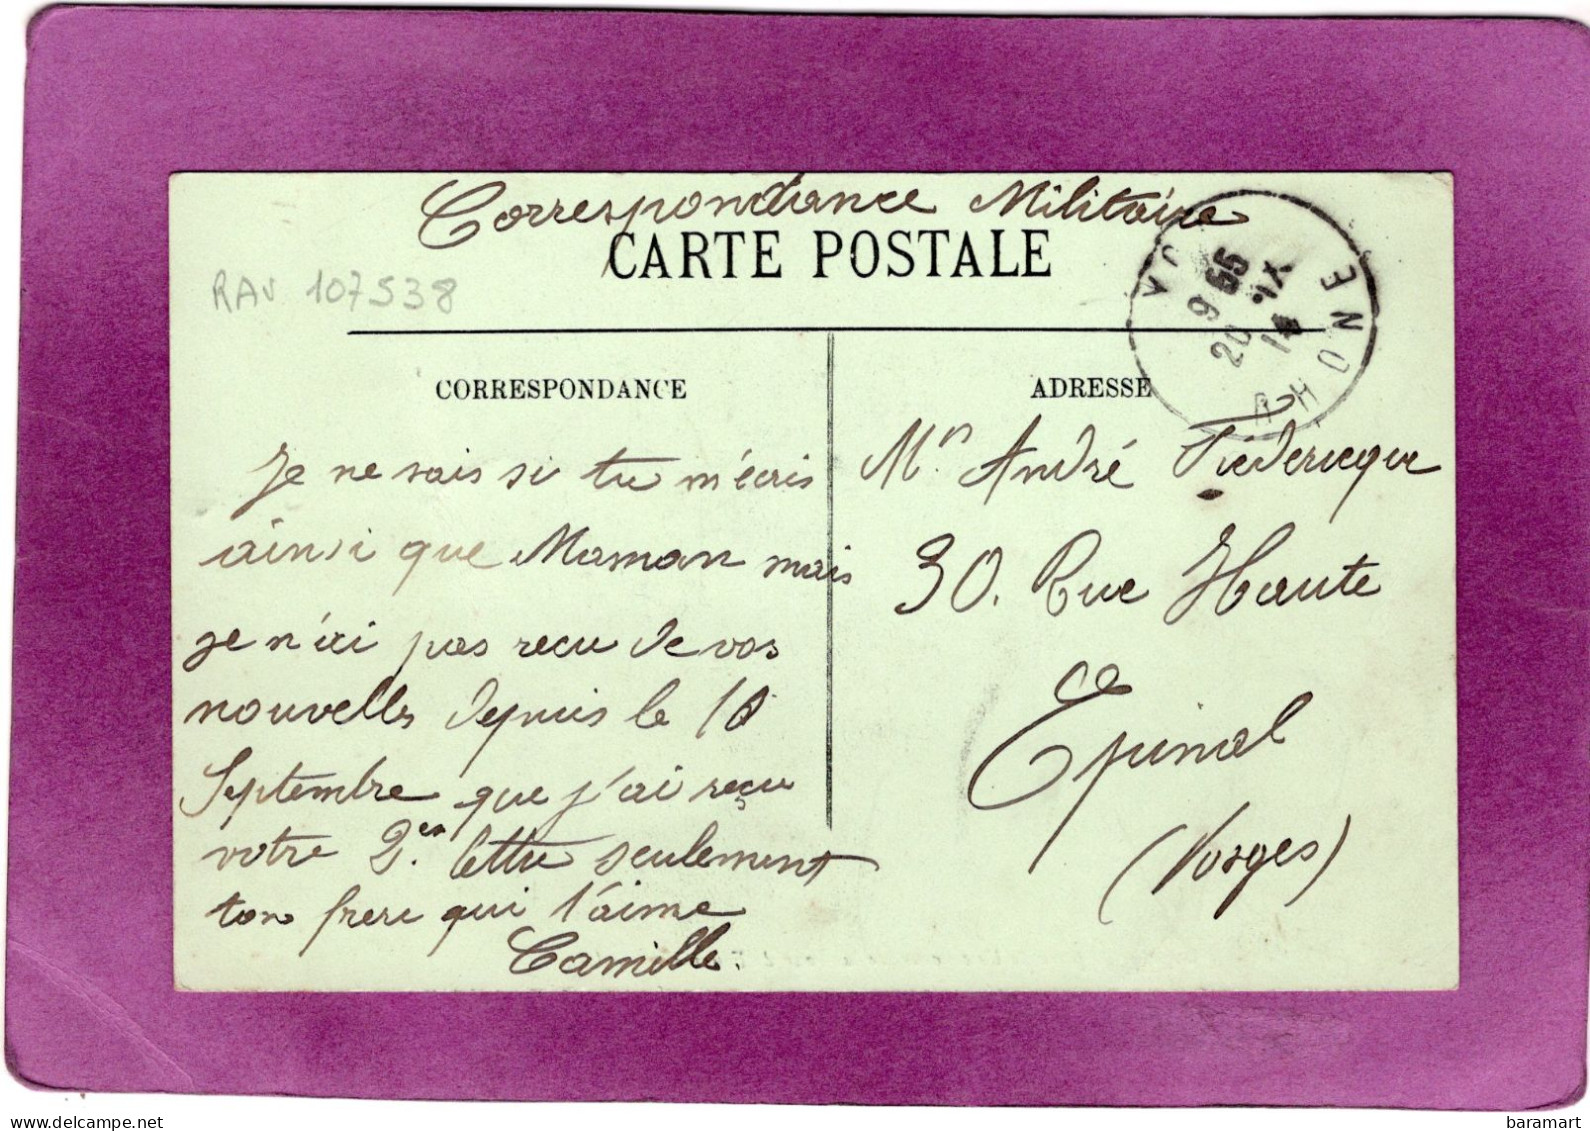 Correspondance Militaire
CARTE POSTALE
RAV 107538
9 55
20 IX
14
RHONE
CORRESPONDANCE
ADRESSE
Je ne sais si tu m'écris
ainsi que Maman mais
je n'ai pas recu de vos
nouvelles depuis le 10
Septembre que j'ai reçu
votre 2.en lettre seulement
ton frere qui t'aime
Camille.
Mr. André
30. Rue Haute
à
Epinal
(Vosges)
delcampe.net
baramart